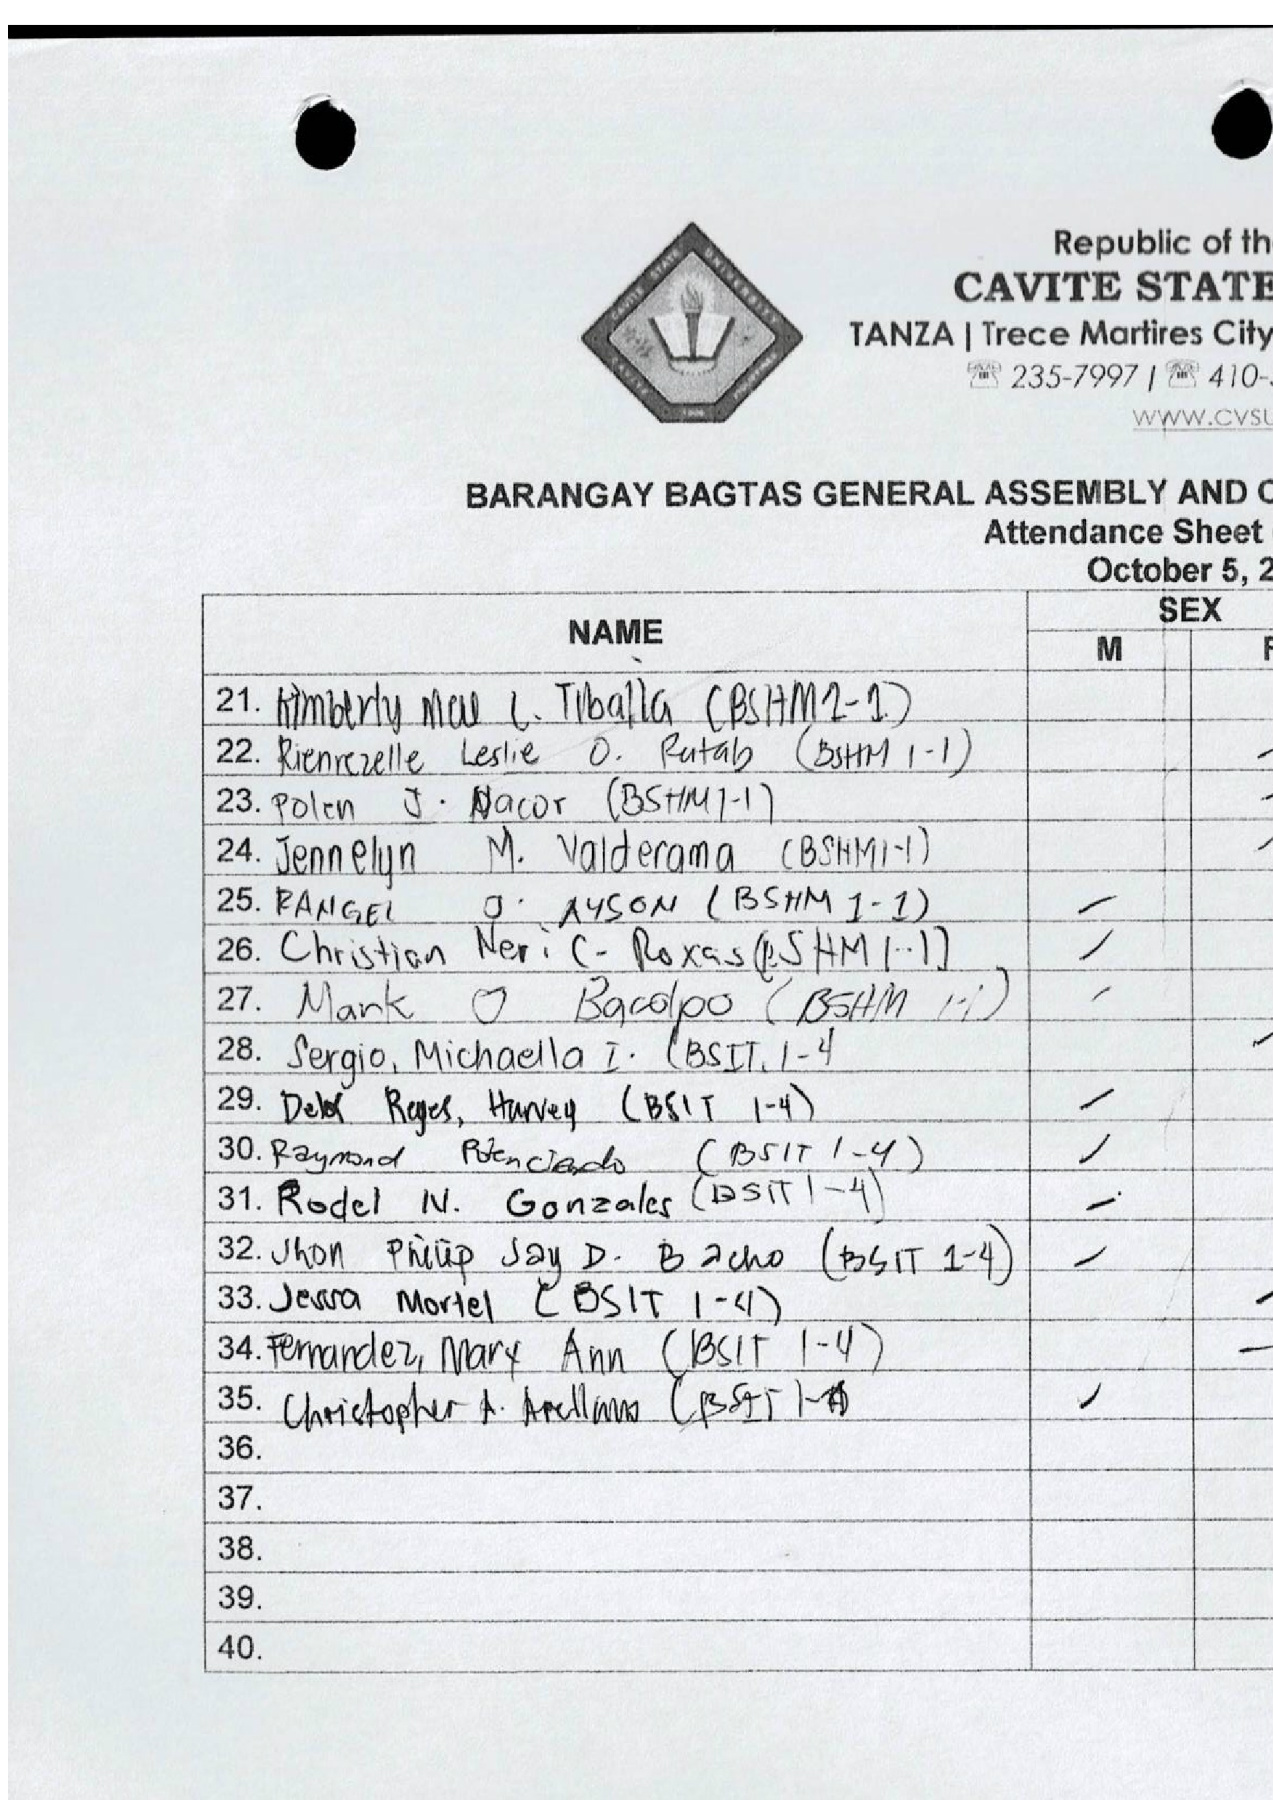 CAVITE STATE UNIVERSITY
1906
Republic of th
CAVITE STATE
TANZA | Trece Martires City
☏ 235-7997 / ☏ 410-
www.cvsu
BARANGAY BAGTAS GENERAL ASSEMBLY AND C
Attendance Sheet
October 5, 2
NAME SEX
M F
21. Kimberly Mae L. Tiballa (BSHM 1-1)
22. Rienrezelle Leslie O. Rutab (BSHM 1-1)
23. Polen J. Nacor (BSHM 1-1)
24. Jennelyn M. Valderama (BSHM1-1)
25. RANGEL O. AYSON (BSHM 1-1)
26. Christian Neri C. Roxas (BSHM 1-1)
27. Mark O Bacolpo (BSHM 1-1)
28. Sergio, Michaella I. (BSIT. 1-4
29. Delos Reyes, Harvey (BSIT 1-4)
30. Raymond Potenciando (BSIT 1-4)
31. Rodel N. Gonzales (BSIT 1-4)
32. Jhon Philip Jay D. Bacho (BSIT 1-4)
33. Jessa Mortel (BSIT 1-4)
34. Fernandez, Mary Ann (BSIT 1-4)
35. Christopher A. Arellano (BSIT 1-4)
36.
37.
38.
39.
40.